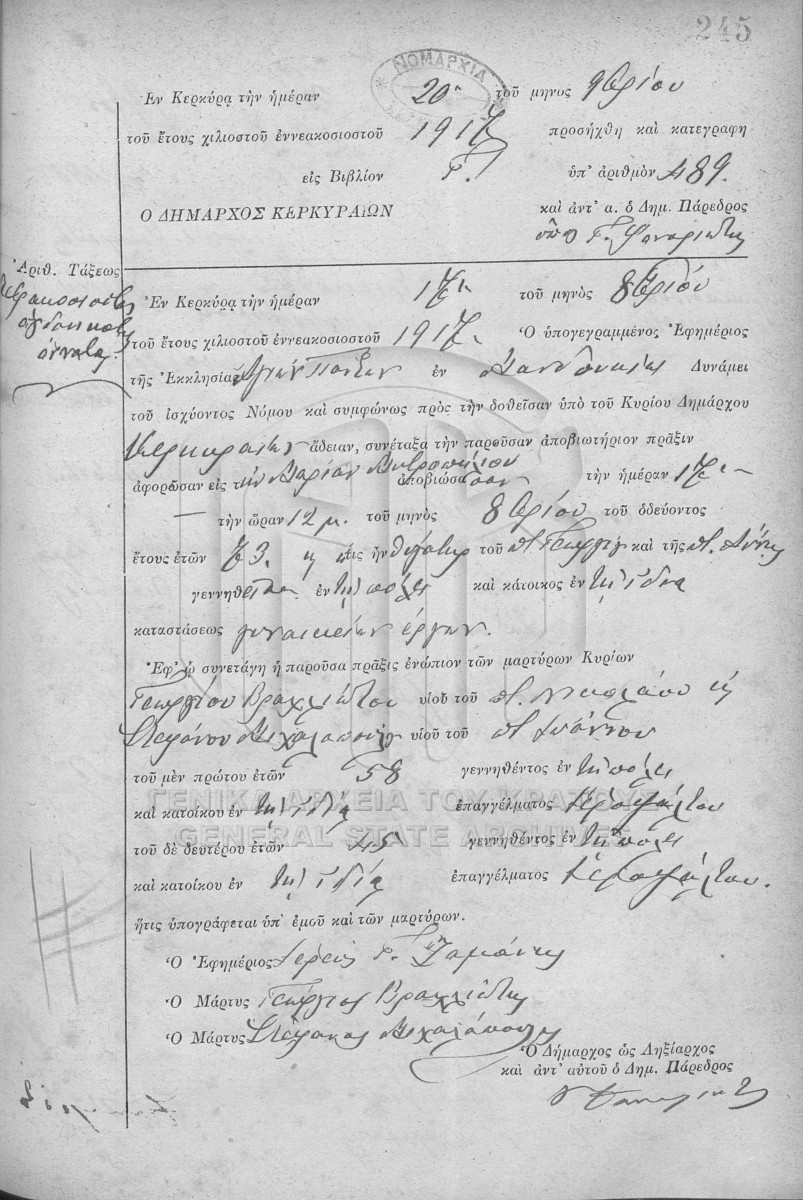 245
ΝΟΜΑΡΧΙΑ
Ἐν Κερκύρᾳ τὴν ἡμέραν 20 τοῦ μηνὸς 9βρίου
τοῦ ἔτους χιλιοστοῦ ἐννεακοσιοστοῦ 1917 προσήχθη καὶ κατεγραφη
εἰς Βιβλίον Γ. ὑπ' ἀριθμὸν 489.
Ο ΔΗΜΑΡΧΟΣ ΚΕΡΚΥΡΑΙΩΝ καὶ ἀντ' α. ὁ Δημ. Πάρεδρος
Ἀριθ. Τάξεως
Ἐν Κερκύρᾳ τὴν ἡμέραν 17 τοῦ μηνὸς 8βρίου
τοῦ ἔτους χιλιοστοῦ ἐννεακοσιοστοῦ 1917 Ὁ ὑπογεγραμμένος Ἐφημέριος
τῆς Ἐκκλησίας Ἁγίων Πάντων ἐν Δυνάμει
τοῦ ἰσχύοντος Νόμου καὶ συμφώνως πρὸς τὴν δοθεῖσαν ὑπὸ τοῦ Κυρίου Δημάρχου
Κερκυραίων ἄδειαν, συνέταξα τὴν παροῦσαν ἀποβιωτήριον πρᾶξιν
ἀφορῶσαν εἰς τὴν Μαρίαν ἀποβιώσασαν τὴν ἡμέραν 17
τὴν ὥραν 12 μ. τοῦ μηνὸς 8βρίου τοῦ ὁδεύοντος
ἔτους ἐτῶν 73. ἥτις ἦν θυγάτηρ τοῦ π. Γεωργίου καὶ τῆς π.
γεννηθεῖσα ἐν τῇ πόλει καὶ κάτοικος ἐν τῇ ἰδίᾳ
καταστάσεως γυναικείων ἔργων.
Ἐφ' ᾧ συνετάγη ἡ παροῦσα πρᾶξις ἐνώπιον τῶν μαρτύρων Κυρίων
Γεωργίου Βραχλιώτου υἱοῦ τοῦ π. Νικολάου
Στεφάνου Μιχαλοπούλου υἱοῦ τοῦ π. Ἰωάννου
τοῦ μὲν πρώτου ἐτῶν 58 γεννηθέντος ἐν τῇ πόλει
καὶ κατοίκου ἐν τῇ ἰδίᾳ ἐπαγγέλματος ἱεροψάλτου
ΓΕΝΙΚΑ ΑΡΧΕΙΑ ΤΟΥ ΚΡΑΤΟΥΣ
GENERAL STATE ARCHIVES
τοῦ δὲ δευτέρου ἐτῶν 45 γεννηθέντος ἐν τῇ πόλει
καὶ κατοίκου ἐν τῇ ἰδίᾳ ἐπαγγέλματος ἱεροψάλτου.
ἥτις ὑπογράφεται ὑπ' ἐμοῦ καὶ τῶν μαρτύρων.
Ὁ Ἐφημέριος Ἱερεὺς
Ὁ Μάρτυς Γεώργιος Βραχλιώτης
Ὁ Μάρτυς Στέφανος Μιχαλόπουλος
Ὁ Δήμαρχος ὡς Ληξίαρχος
καὶ ἀντ' αὐτοῦ ὁ Δημ. Πάρεδρος